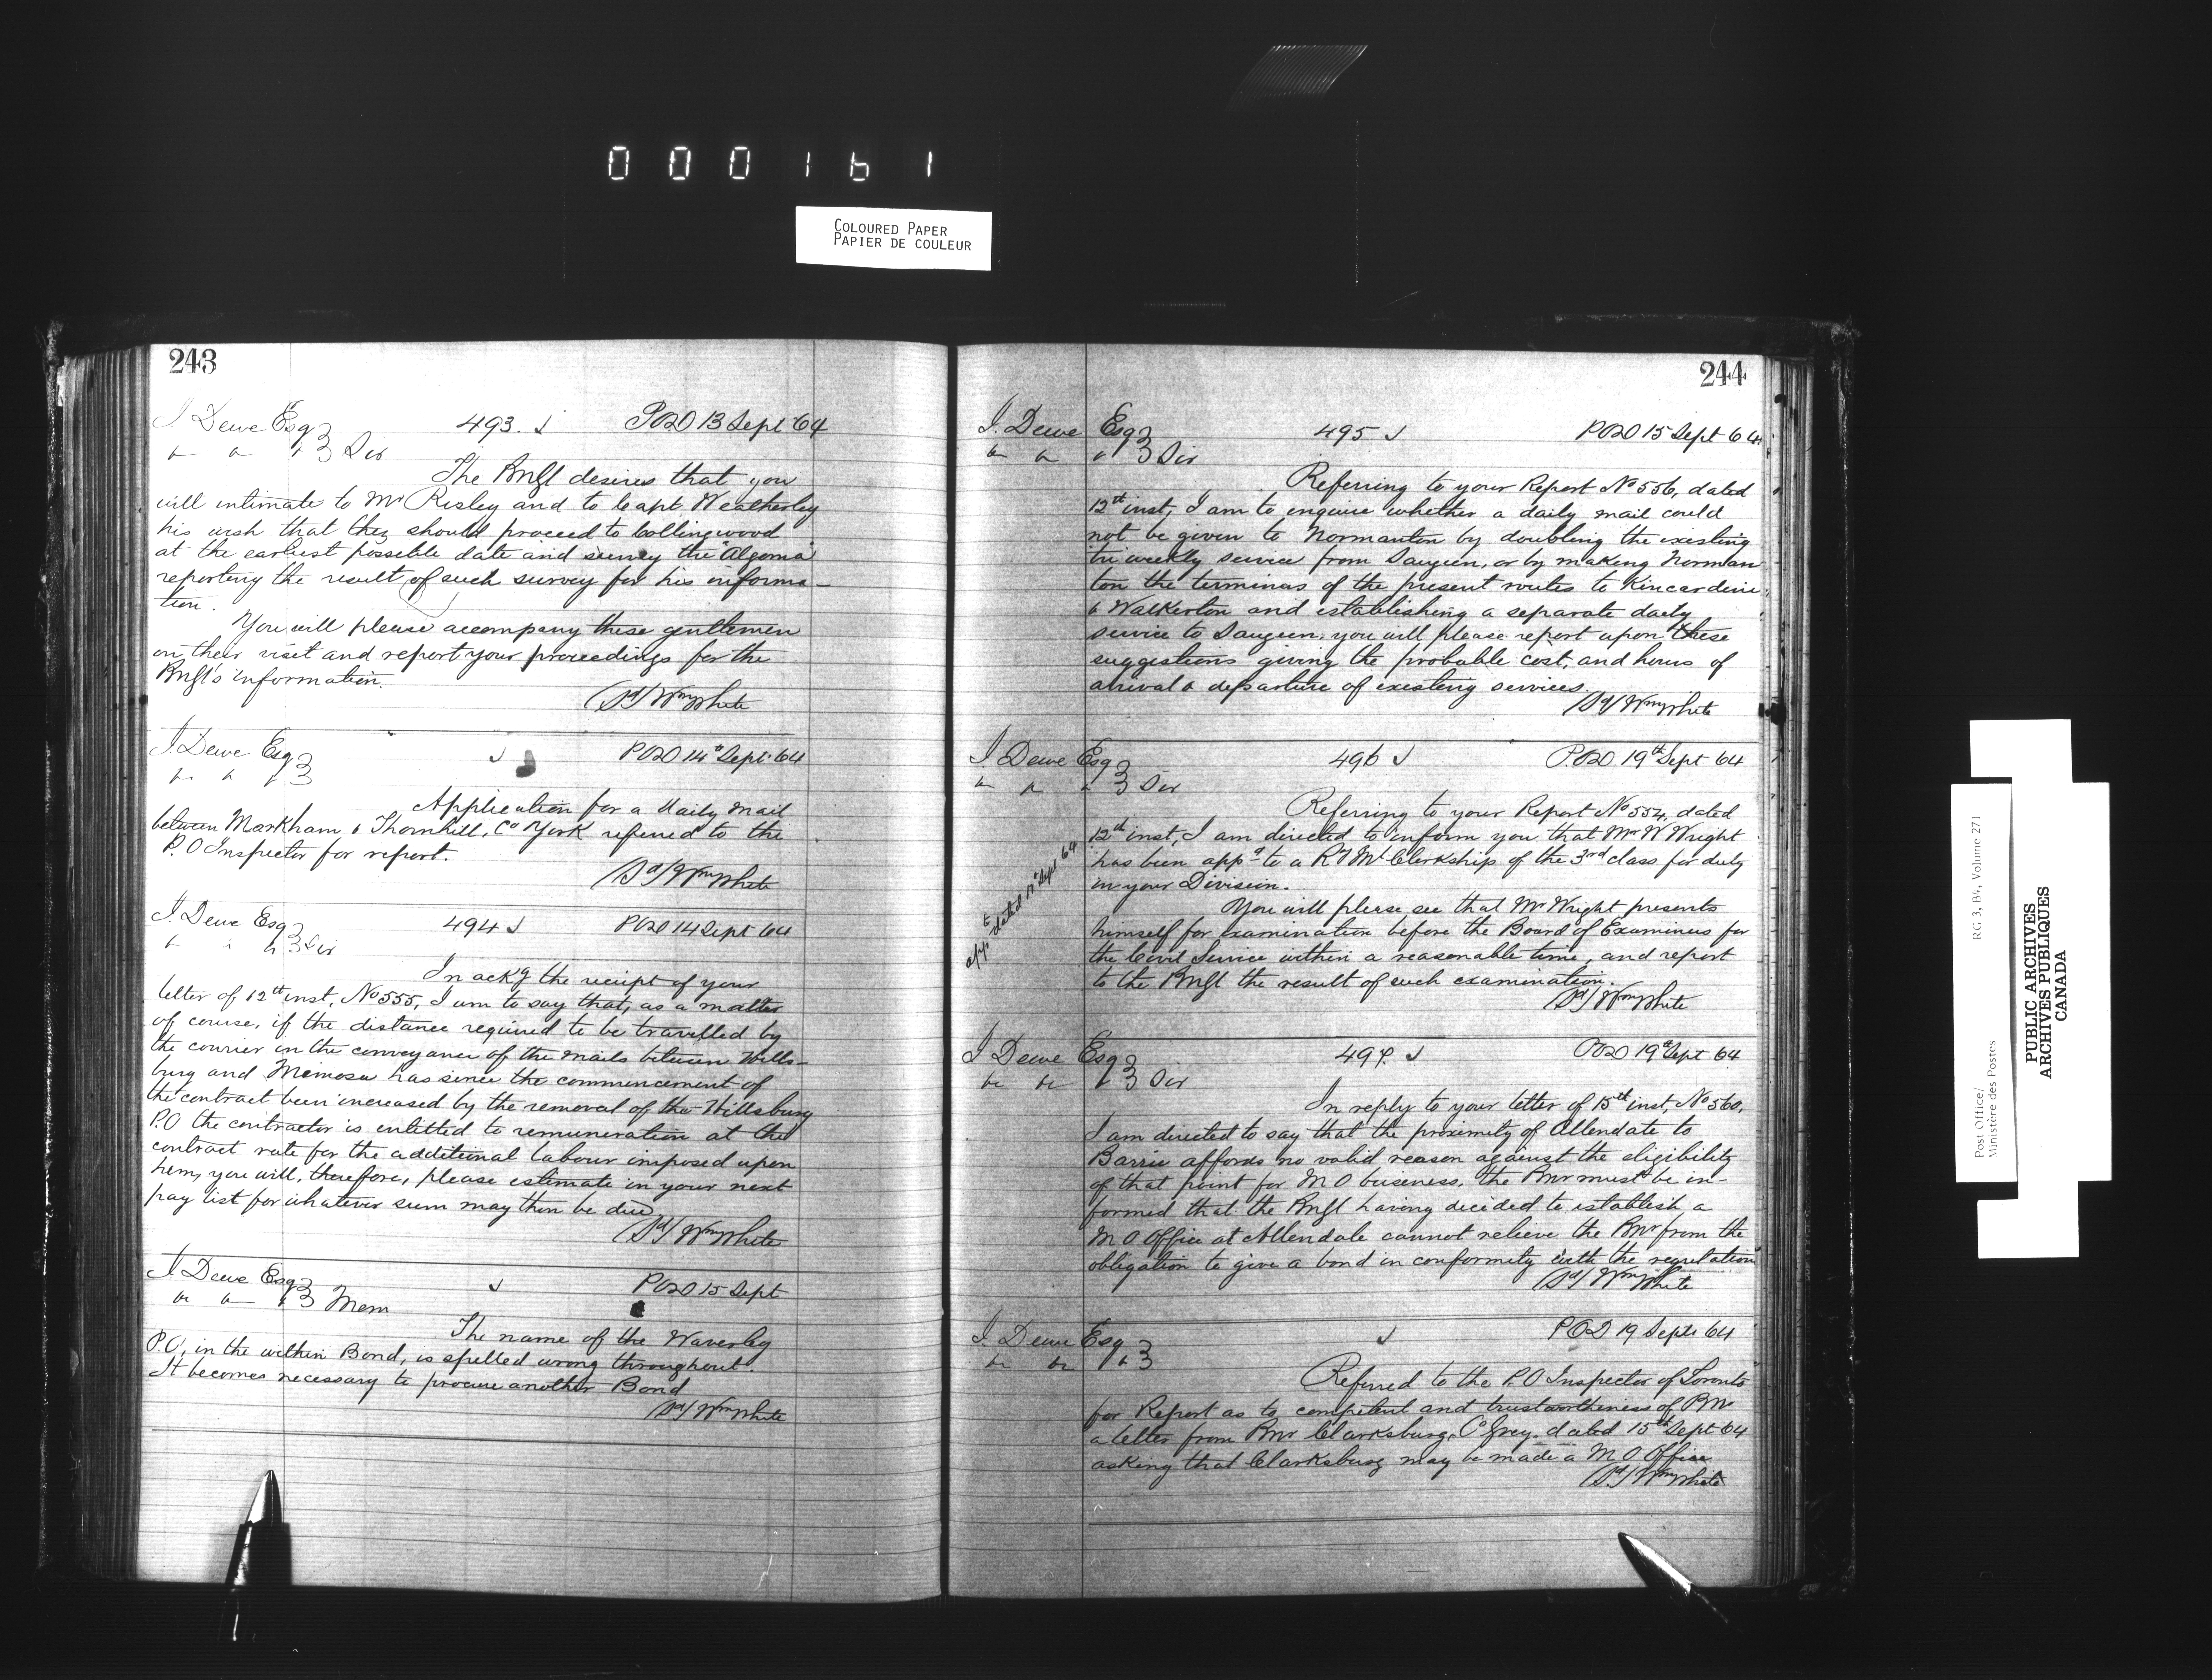 000161
COLOURED PAPER
PAPIER DE COULEUR
243
J. Dewe Esq 493. POD 13 Sept 64
Sir
The PMGl desires that you
will intimate to Mr Risley and to Capt. Weatherley
his wish that they should proceed to Collingwood
at the earliest possible date and survey the "Algoma"
reporting the result of such survey for his informa-
tion.
You will please accompany these gentlemen
on their visit and report your proceedings for the
PMGl's information.
Sd/ Wm White
J. Dewe Esq POD 14th Sept. 64
Application for a daily mail
between Markham & Thornhill, Co York referred to the
P.O Inspector for report.
Sd/ Wm White
J. Dewe Esq 494 POD 14 Sept 64
Sir
In ackg the receipt of your
letter of 12th inst, No 555, I am to say that, as a matter
of course, if the distance required to be travelled by
the courier in the conveyance of the mails between Hills-
burg and Mimosa has since the commencement of
the contract been increased by the removal of the Hillsburg
P.O the contractor is entitled to remuneration at the
contract rate for the additional labour imposed upon
him, you will, therefore, please estimate in your next
pay list for whatever sum may then be due
Sd/ Wm White
J. Dewe Esq POD 15 Sept
Mem
The name of the Waverley
P.O, in the within Bond, is spelled wrong throughout.
It becomes necessary to procure another Bond
Sd/ Wm White
244
J. Dewe Esq 495 POD 15 Sept 64
Sir
Referring to your Report No 556, dated
12th inst, I am to enquire whether a daily mail could
not be given to Normanton by doubling the existing
tri weekly service from Saugeen, or by making Norman
ton the terminus of the present routes to Kincardine
& Walkerton and establishing a separate daily
service to Saugeen. you will please report upon these
suggestions giving the probable cost, and hours of
arrival & departure of existing services.
Sd/ Wm White
J. Dewe Esq 496 P.OD 19th Sept 64
Sir
Referring to your Report No 554, dated
12th inst, I am directed to inform you that Mr W Wright
has been appd to a Ry Ml Clerkship of the 3rd class for duty
in your Division.
appt dated 17th Sept 64
You will please see that Mr Wright presents
himself for examination before the Board of Examiners for
the Civil Service within a reasonable time, and report
to the PMGl the result of such examination.
Sd/ Wm White
J. Dewe Esq 497. POD 19th Sept 64
Sir
In reply to your letter of 15th inst, No 560,
I am directed to say that the proximity of Allendale to
Barrie affords no valid reason against the eligibility
of that point for M O business. the PMr must be in-
formed that the PMGl having decided to establish a
M O Office at Allendale cannot relieve the PMr from the
obligation to give a bond in conformity with the regulation
Sd/ Wm White
J. Dewe Esq POD 19 Sept 64
Referred to the P.O Inspector of Toronto
for Report as to competent and trustworthiness of PMr
a letter from PMr Clarksburg, Co Grey. dated 15th Sept 64
asking that Clarksburg may be made a M O Office
Sd/ Wm White
Post Office/
Ministère des Postes
RG 3, B4, Volume 271
PUBLIC ARCHIVES
ARCHIVES PUBLIQUES
CANADA